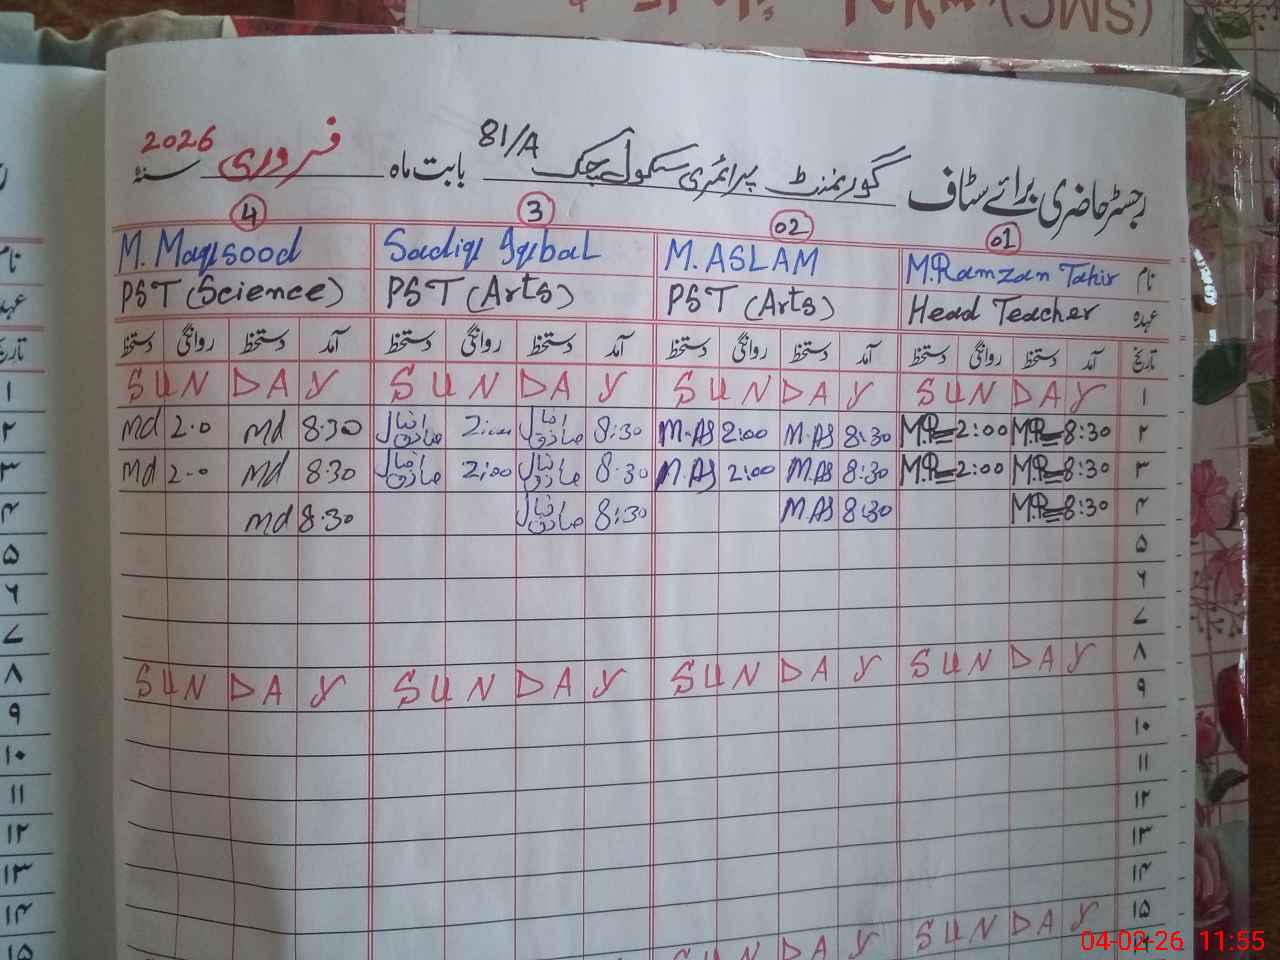 (SMC)
رجسٹر حاضری برائے سٹاف گورنمنٹ پرائمری سکول چک 81/A بابت ماہ فروری سنہ 2026
01 02 3 4
نام M.Ramzan Tahir M.ASLAM Sadiq Iqbal M. Maqsood
عہدہ Head Teacher PST (Arts) PST (Arts) PST (Science)
تاریخ آمد دستخط روانگی دستخط آمد دستخط روانگی دستخط آمد دستخط روانگی دستخط آمد دستخط روانگی دستخط
۱ SUNDAY SUNDAY SUNDAY SUNDAY
۲ 8:30 M.R 2:00 M.R 8:30 M.AS 2:00 M.AS 8:30 صادق اقبال 2:00 صادق اقبال 8:30 md 2.0 md
۳ 8:30 M.R 2:00 M.R 8:30 M.AS 2:00 M.AS 8:30 صادق اقبال 2:00 صادق اقبال 8:30 md 2.0 md
۴ 8:30 M.R 8:30 M.AS 8:30 صادق اقبال 8:30 md
۵
۶
۷
۸ SUNDAY SUNDAY SUNDAY SUNDAY
۹
۱۰
۱۱
۱۲
۱۳
۱۴
۱۵ SUNDAY SUNDAY
نام
عہدہ
تاریخ
۱
۲
۳
۴
۵
۶
۷
۸
۹
۱۰
۱۱
۱۲
۱۳
۱۴
۱۵
04-02-26 11:55